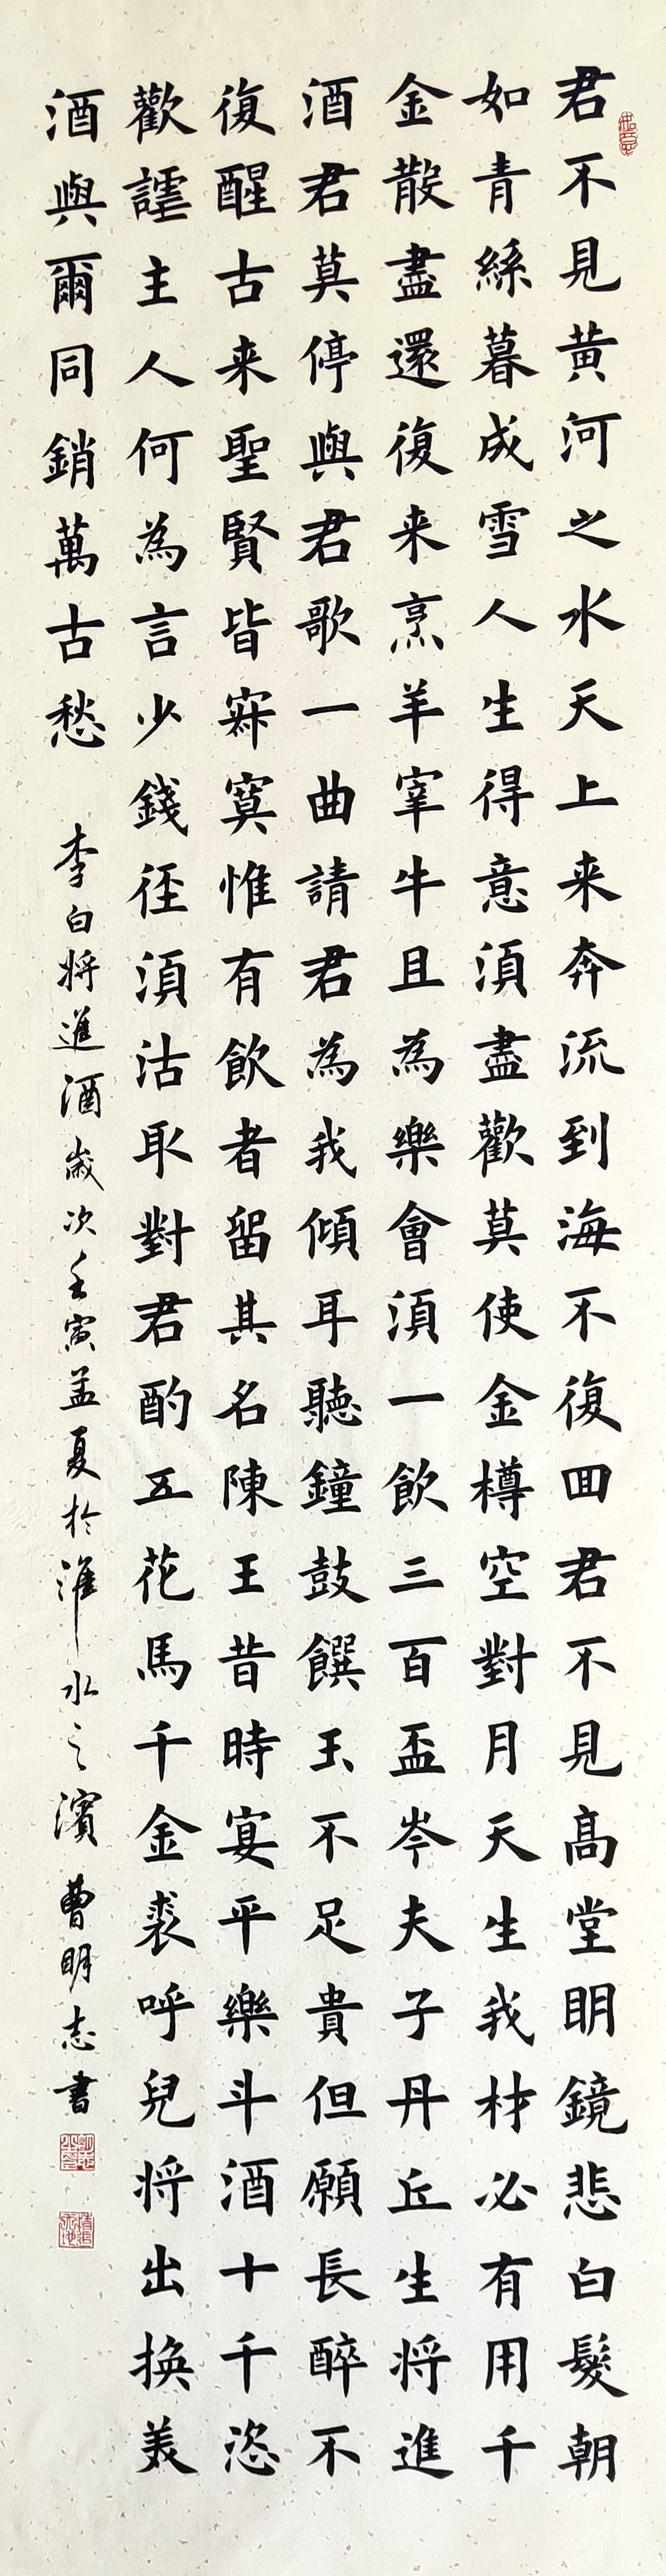 君不見黄河之水天上来奔流到海不復回君不見高堂明鏡悲白髮朝
如青絲暮成雪人生得意須盡歡莫使金樽空對月天生我材必有用千
金散盡還復来烹羊宰牛且為樂會須一飲三百盃岑夫子丹丘生将進
酒君莫停與君歌一曲請君為我傾耳聽鐘鼓饌玉不足貴但願長醉不
復醒古来聖賢皆寂寞惟有飲者留其名陳王昔時宴平樂斗酒十千恣
歡謔主人何為言少錢徑須沽取對君酌五花馬千金裘呼兒将出换美
酒與爾同銷萬古愁
李白将進酒歲次壬寅孟夏於淮水之濱曹明志書